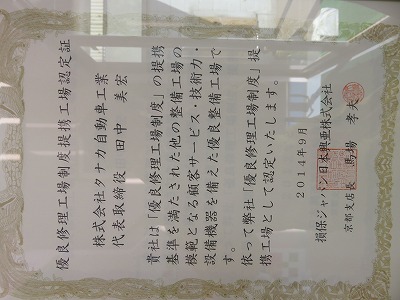 優良修理工場制度提携工場認定証
株式会社タナカ自動車工業
代表取締役　田中　美宏
貴社は「優良修理工場制度」の提携
基準を満たされた他の整備工場の
模範となる顧客サービス・技術力・
設備機器を備えた優良整備工場で
す。
依って弊社「優良修理工場制度」提
携工場として認定いたします。
2014年9月
損保ジャパン日本興亜株式会社
京都支店長　馬場　孝夫